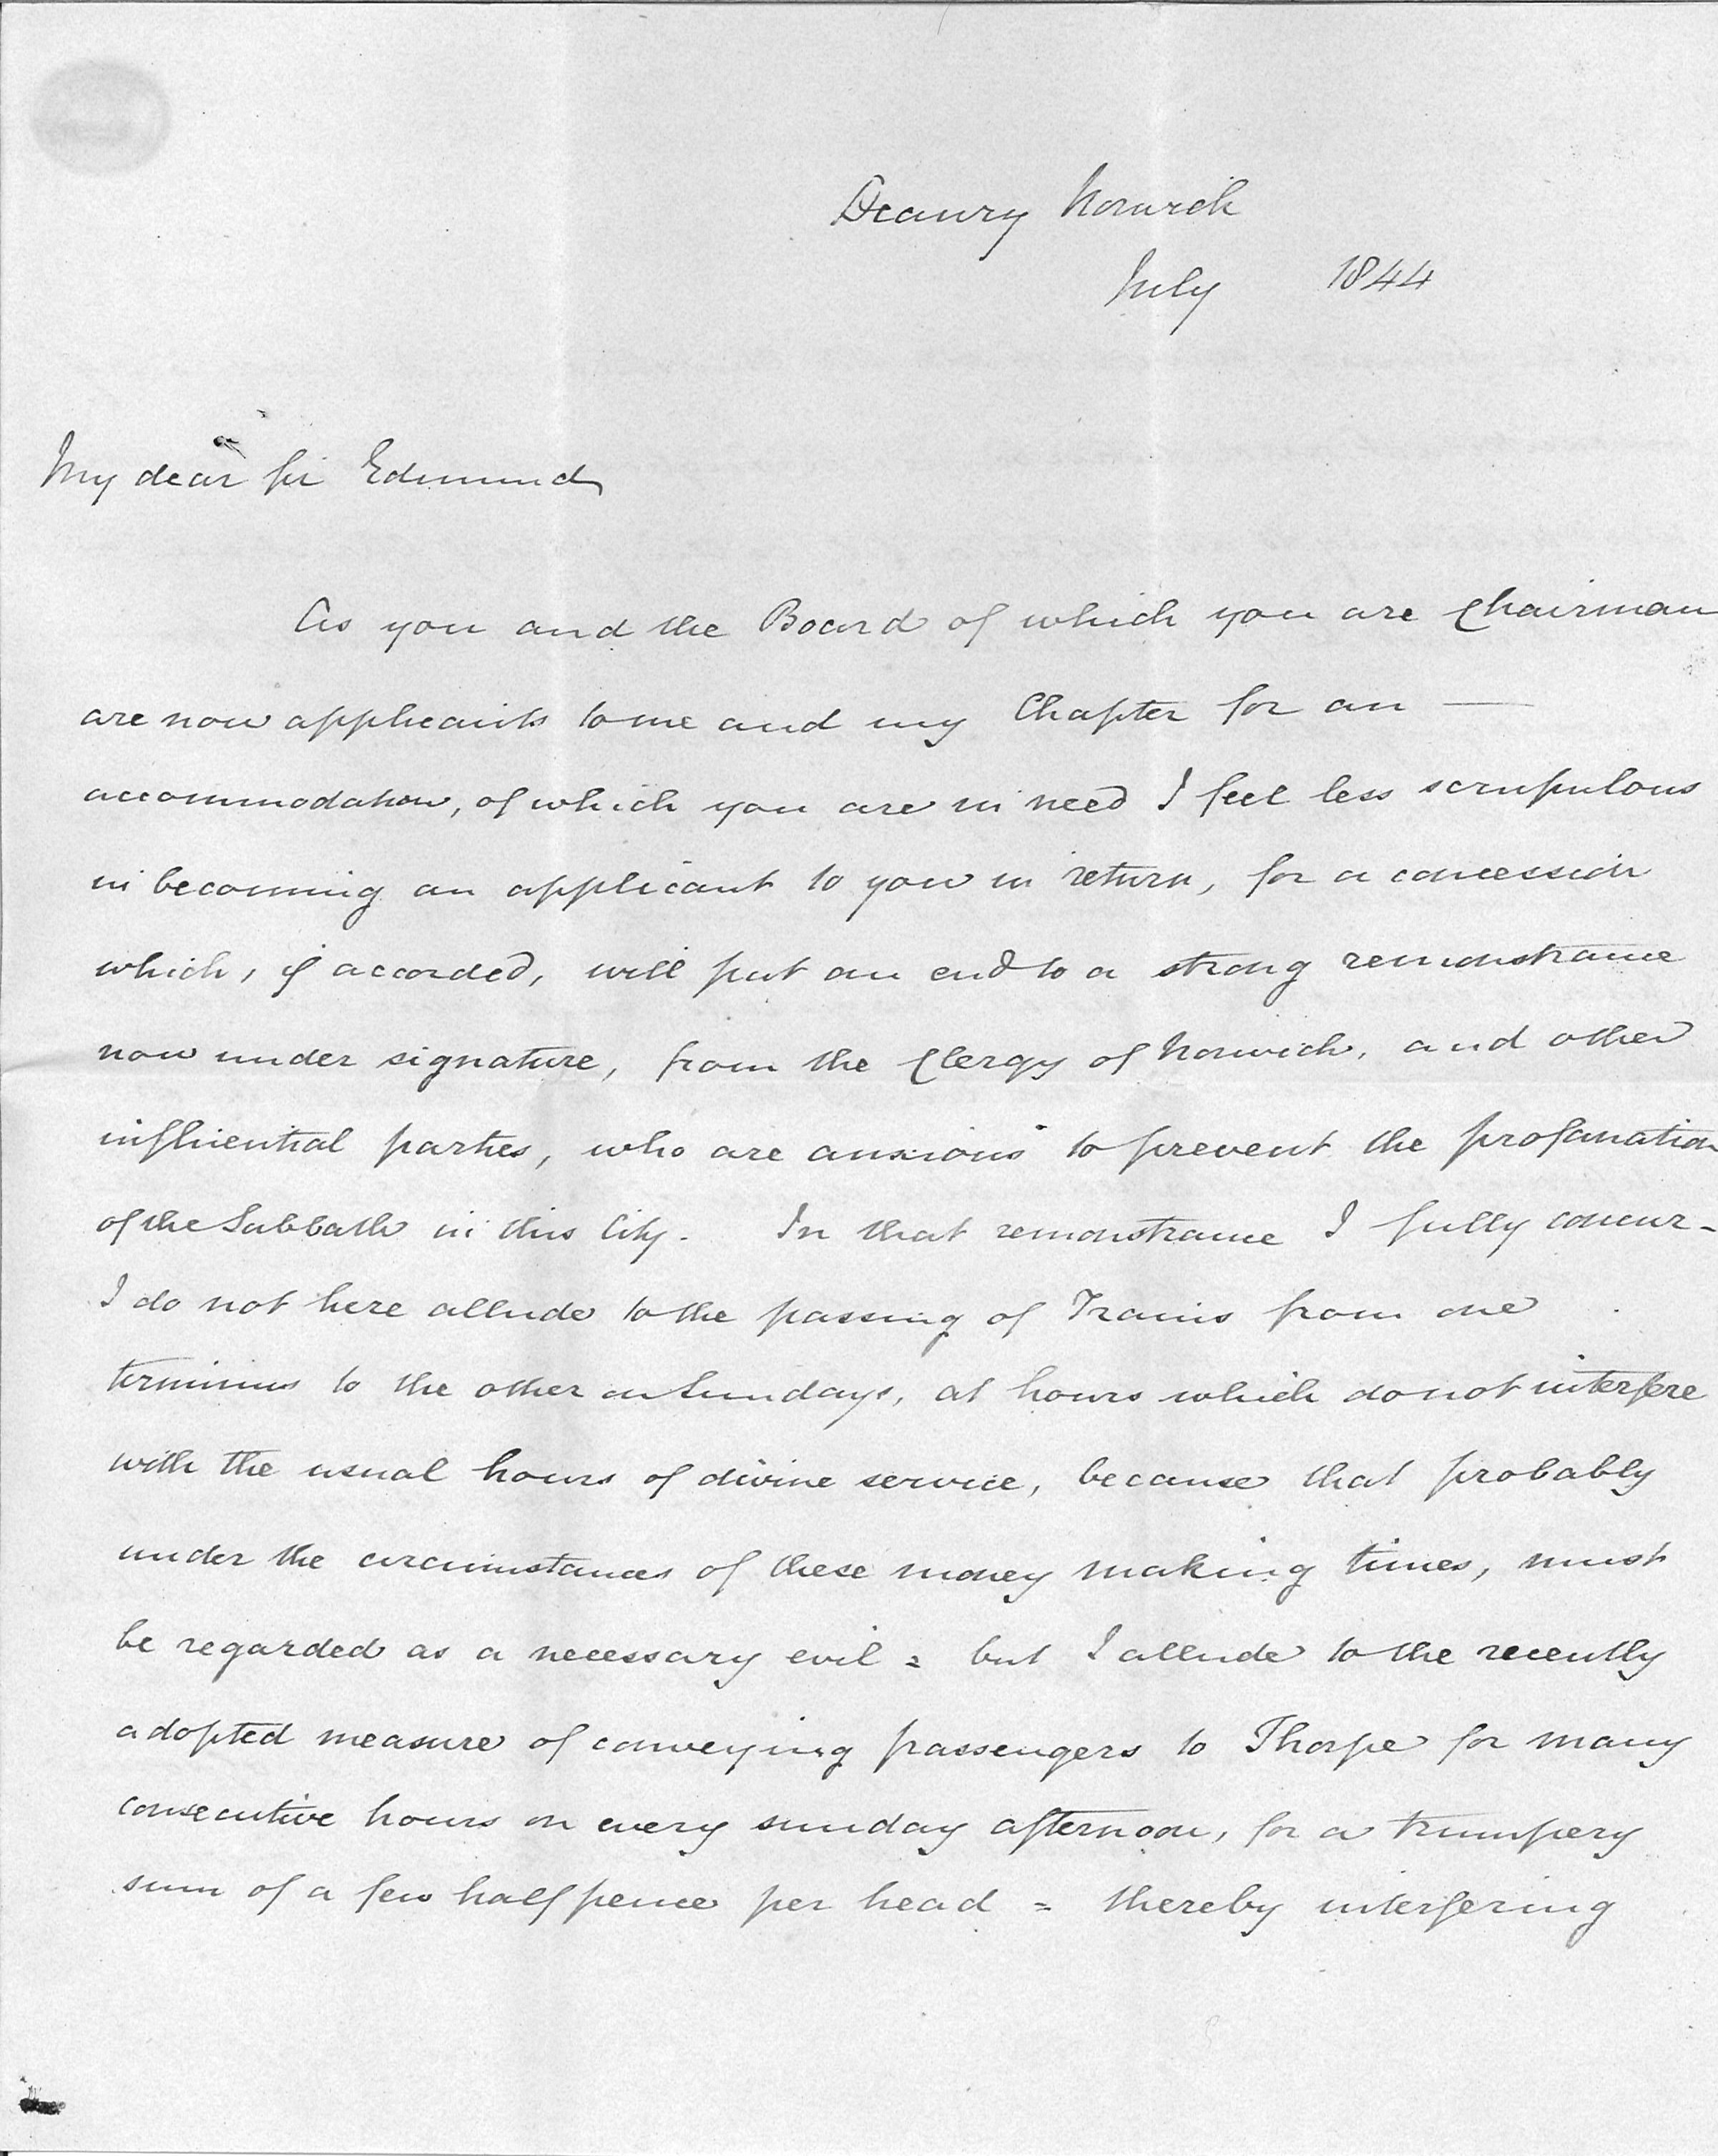 Deanry Norwich
July 1844
My dear Sir Edmund
As you and the Board of which you are Chairman
are now applicants to me and my Chapter for an —
accommodation, of which you are in need I feel less scrupulous
in becoming an applicant to you in return, for a concession
which, if accorded, will put an end to a strong remonstrance
now under signature, from the Clergy of Norwich, and other
influential parties, who are anxious to prevent the profanation
of the Sabbath in this City. In that remonstrance I fully concur -
I do not here allude to the passing of Trains from one
terminus to the other on Sundays, at hours which do not interfere
with the usual hours of divine service, because that probably
under the circumstances of these money making times, must
be regarded as a necessary evil = but I allude to the recently
adopted measure of conveying passengers to Thorpe for many
consecutive hours on every sunday afternoon, for a trumpery
sum of a few halfpence per head = thereby interfering